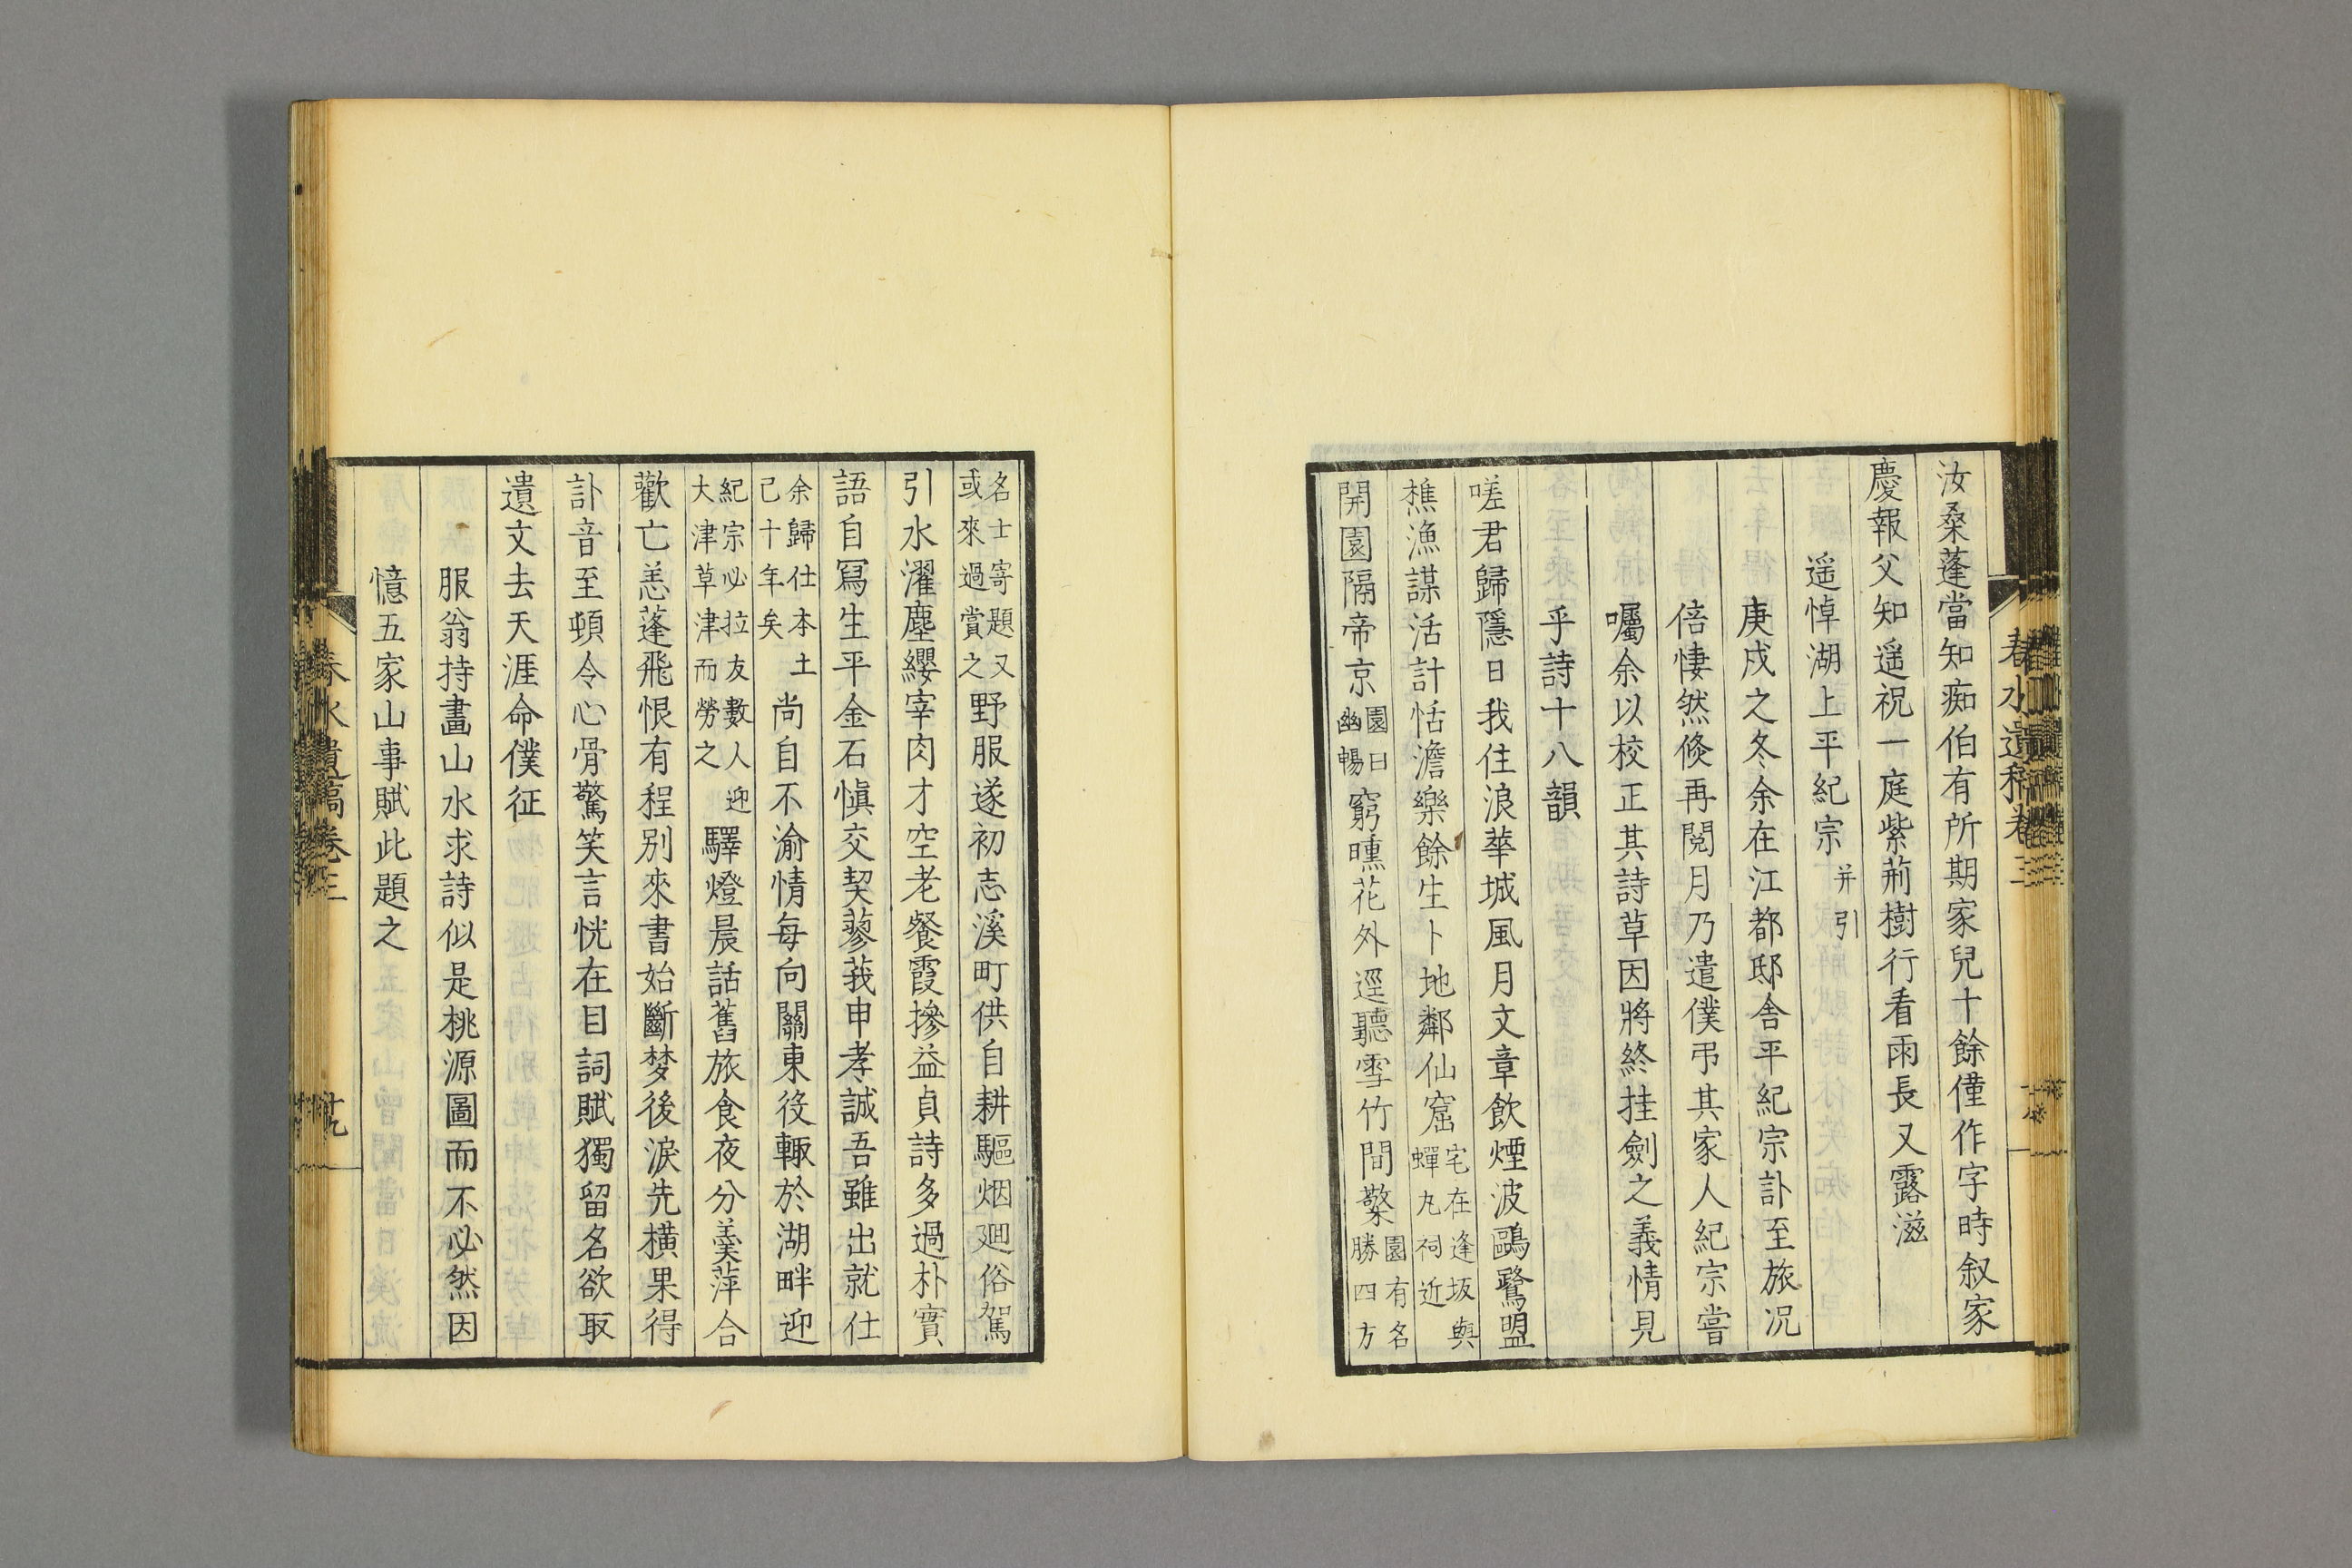 汝桑蓬當知痴伯有所期家兒十餘僅作字時叙家
慶報父知遥祝一庭紫荊樹行看雨長又露滋
遥悼湖上平紀宗并引
庚戍之冬余在江都邸舍平紀宗訃至旅况
倍悽然倐再閲月乃遣僕弔其家人紀宗嘗
囑余以校正其詩草因將終挂劍之義情見
乎詩十八韻
嗟君歸隱日我住浪華城風月文章飲煙波鷗鷺盟
樵漁謀活計恬澹樂餘生卜地鄰仙窟宅在逢坂與蟬丸祠近
開園隔帝京園曰幽暢窮曛花外逕聽雪竹間檠園有名勝四方
名士寄題又或來過賞之野服遂初志溪町供自耕驅烟廻俗駕
引水濯塵纓宰肉才空老餐霞摻益貞詩多過朴實
語自冩生平金石愼交契蓼莪申孝誠吾雖出就仕
余歸仕本土已十年矣尚自不渝情每向關東役輙於湖畔迎
紀宗必拉友數人迎大津草津而勞之驛燈晨話舊旅食夜分羹萍合
歡亡恙蓬飛恨有程別來書始斷梦後淚先横果得
訃音至頓令心骨驚笑言恍在目詞賦獨留名欲取
遺文去天涯命僕征
服翁持畫山水求詩似是桃源圖而不必然因
憶五家山事賦此題之
春水遺稿卷三
十九